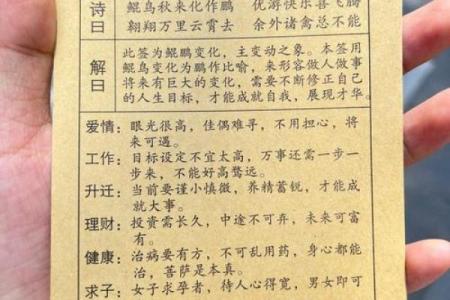 诗曰
鲲鸟秋来化作鹏 优游快乐喜飞腾
翱翔万里云霄去 余外诸禽总不能
解曰
此签为鲲鹏变化，主变动之象。本签用
鲲鸟变化为鹏作比喻，来形容做人做事
将来有巨大的变化，需要不断修正自己
的人生目标，才能成就自我，展现才华。
爱情：眼光很高，佳偶难寻，不用担心，将
来可遇。
工作：目标设定不宜太高，万事还需一步一
步来，不能好高骛远。
升迁：当前要谨小慎微，养精蓄锐，才能成
就大事。
理财：投资需长久，中途不可弃，未来可富
有。
健康：治病要有方，不可乱用药，身心都能
治，菩萨是本真。
求子：女子求孕者，待人心得宽，男女即可